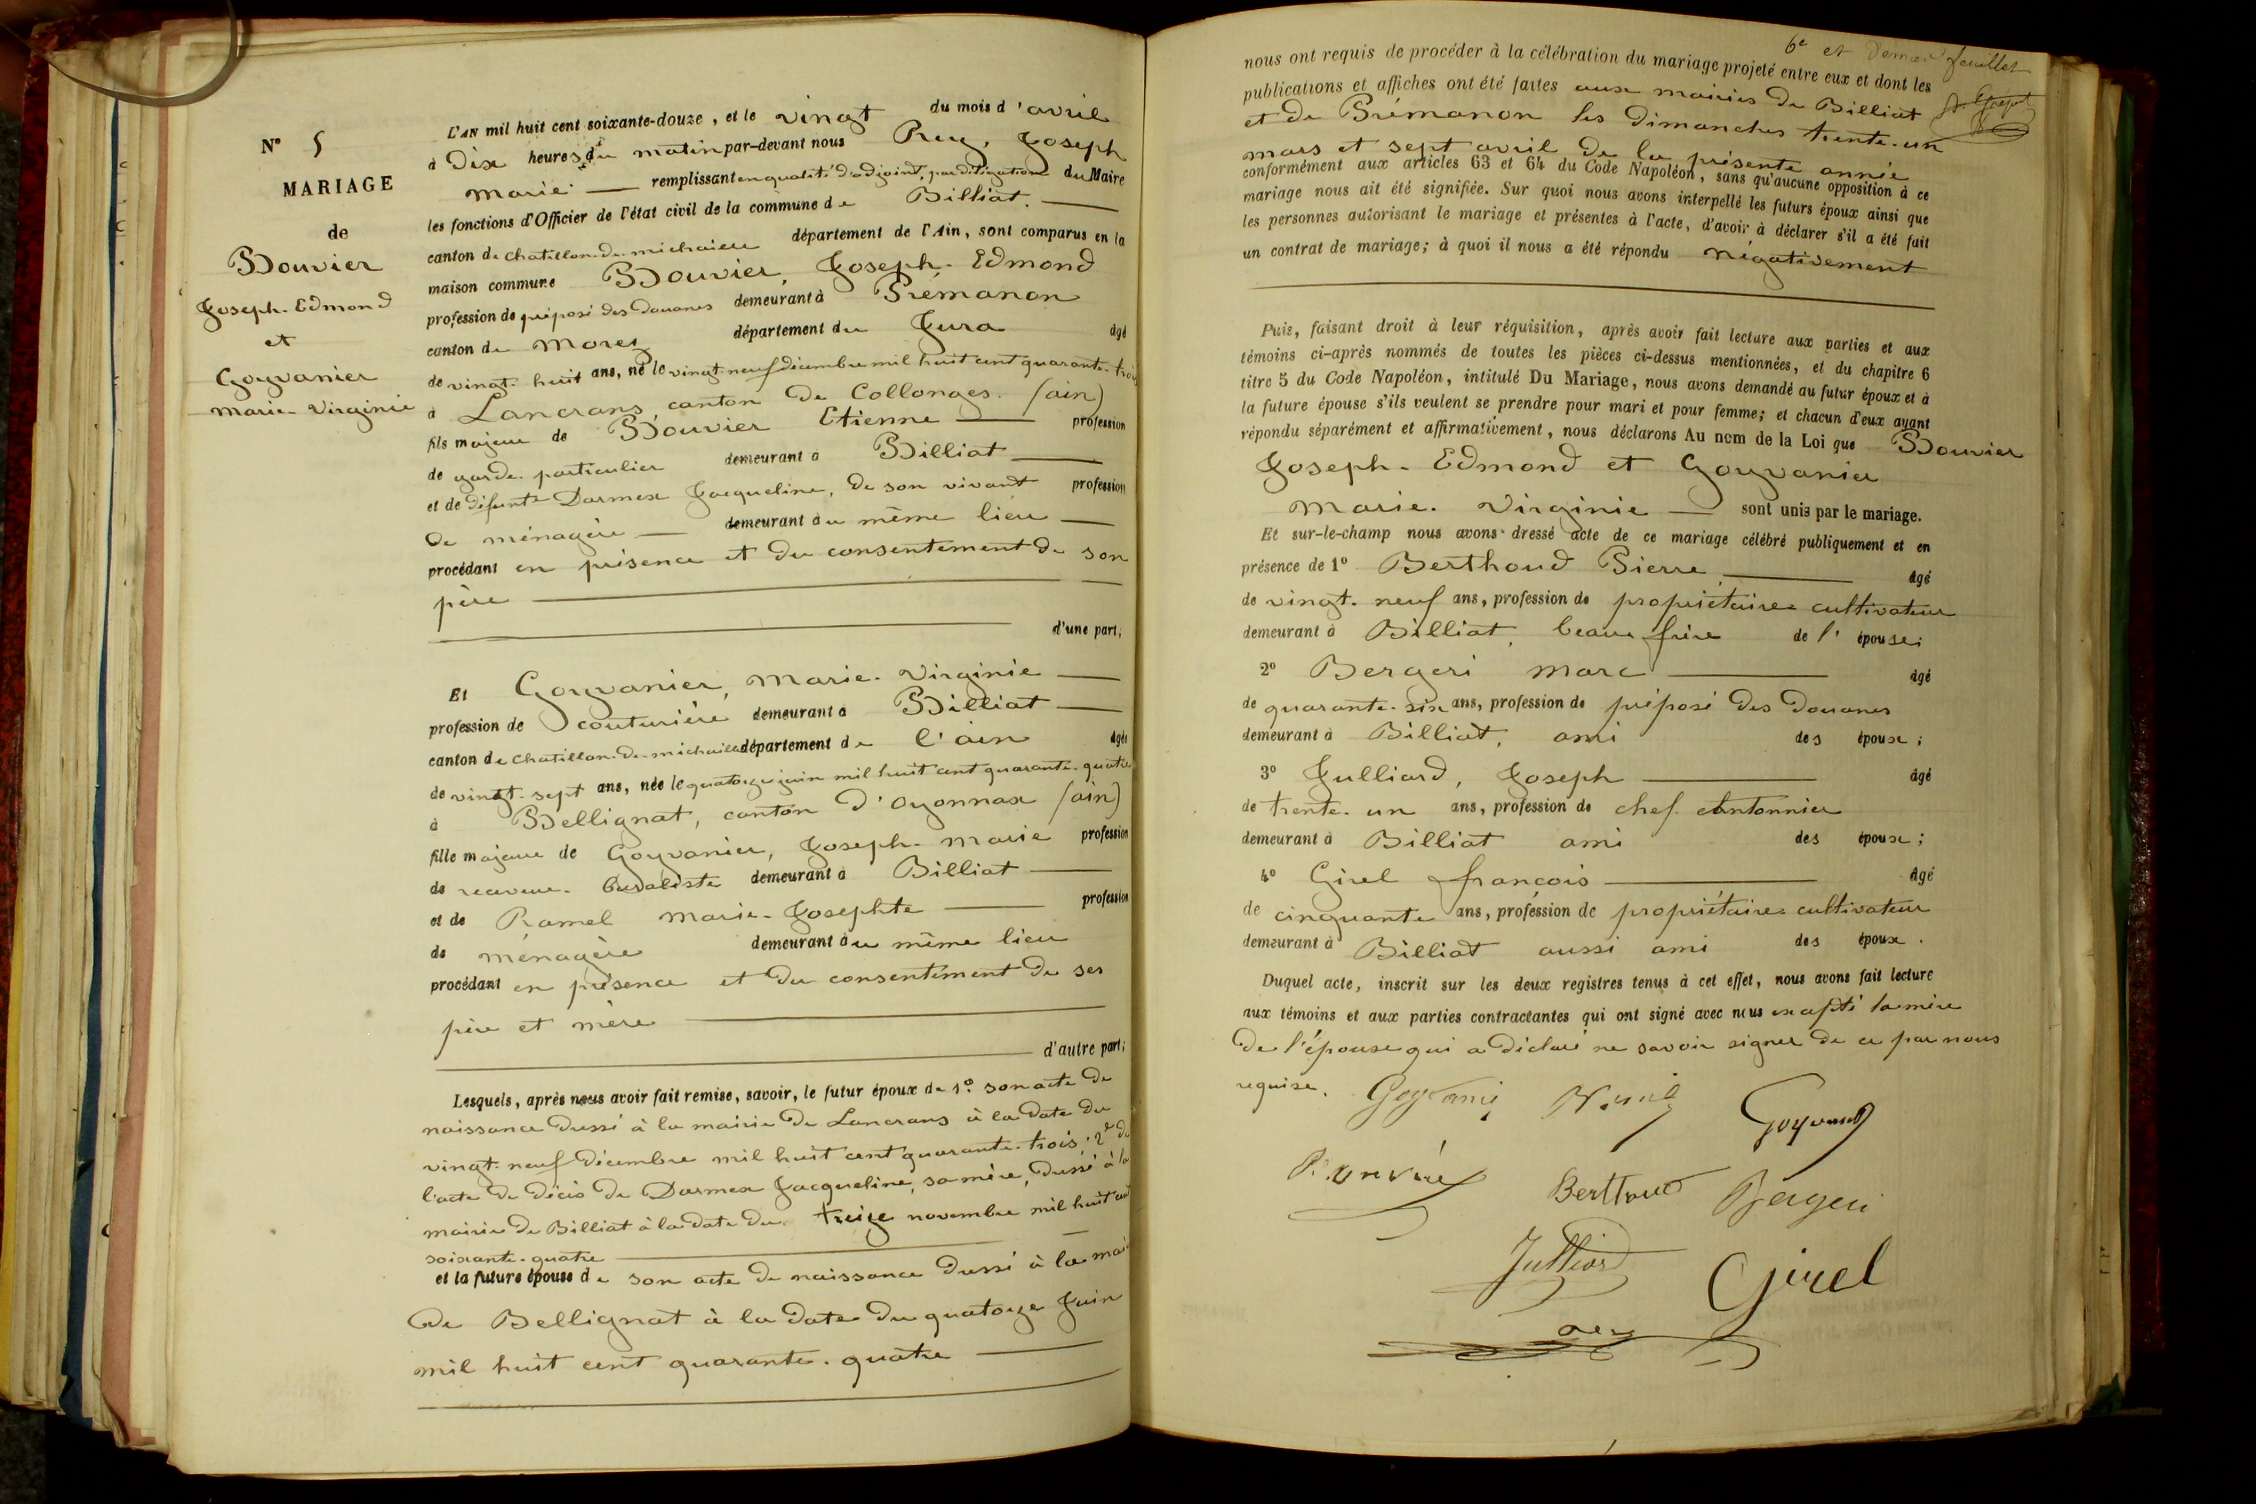 N° 5
MARIAGE
de
Bouvier
Joseph-Edmond
et
Goyvanier
Marie-Virginie
L'AN mil huit cent soixante-douze, et le vingt du mois d'avril
à Dix heures du matin par-devant nous Rey, Joseph
Marie — remplissant en qualité d'adjoint, par délégation du Maire
les fonctions d'Officier de l'état civil de la commune de Billiat. —
canton de chatillon-de-michaille département de l'Ain, sont comparus en la
maison commune Bouvier, Joseph-Edmond
profession de préposé des Douanes demeurant à Prémanon
canton de Morez département du Jura âgé
de vingt-huit ans, né le vingt-neuf décembre mil huit cent quarante-trois
à Lancrans, canton de Collonges. (ain)
fils majeur de Bouvier Etienne — profession
de garde-particulier demeurant à Billiat —
et de défunte Darmex Jacqueline, de son vivant profession
de ménagère — demeurant au même lieu —
procédant en présence et du consentement de son
père —
d'une part;
Et Goyvanier, Marie-Virginie —
profession de couturière demeurant à Billiat —
canton de chatillon-de-michaille département de l'ain âgée
de vingt-sept ans, née le quatorze juin mil huit cent quarante-quatre
à Bellignat, canton d'oyonnax (ain)
fille majeure de Goyvanier, Joseph-Marie profession
de receveur-buraliste demeurant à Billiat —
et de Ramel Marie-Josephte — profession
de ménagère demeurant au même lieu
procédant en présence et du consentement de ses
père et mère —
d'autre part;
Lesquels, après nous avoir fait remise, savoir, le futur époux de 1° son acte de
naissance dressé à la mairie de Lancrans à la date du
vingt-neuf décembre mil huit cent quarante-trois; 2° de
l'acte de décès de Darmex Jacqueline, sa mère, dressé à la
mairie de Billiat à la date du treize novembre mil huit cent
soixante-quatre —
et la future épouse de son acte de naissance dressé à la mai
de Bellignat à la date du quatorze Juin
mil huit cent quarante-quatre —
6e et Dernier feuillet
nous ont requis de procéder à la célébration du mariage projeté entre eux et dont les
publications et affiches ont été faites aux mairies de Billiat
et de Prémanon les dimanches trente-un
mars et sept avril de la présente année
conformément aux articles 63 et 64 du Code Napoléon, sans qu'aucune opposition à ce
mariage nous ait été signifiée. Sur quoi nous avons interpellé les futurs époux ainsi que
les personnes autorisant le mariage et présentes à l'acte, d'avoir à déclarer s'il a été fait
un contrat de mariage; à quoi il nous a été répondu négativement
Puis, faisant droit à leur réquisition, après avoir fait lecture aux parties et aux
témoins ci-après nommés de toutes les pièces ci-dessus mentionnées, et du chapitre 6
titre 5 du Code Napoléon, intitulé Du Mariage, nous avons demandé au futur époux et à
la future épouse s'ils veulent se prendre pour mari et pour femme; et chacun d'eux ayant
répondu séparément et affirmativement, nous déclarons Au nom de la Loi que Bouvier
Joseph-Edmond et Goyvanier
Marie-Virginie — sont unis par le mariage.
Et sur-le-champ nous avons dressé acte de ce mariage célébré publiquement et en
présence de 1° Berthoud Pierre — âgé
de vingt-neuf ans, profession de propriétaire cultivateur
demeurant à Billiat, beau-frère de l'épouse;
2° Bergeri Marc — âgé
de quarante-six ans, profession de préposé des Douanes
demeurant à Billiat, ami des époux;
3° Julliard, Joseph — âgé
de trente-un ans, profession de chef cantonnier
demeurant à Billiat ami des époux;
4° Girel françois — âgé
de cinquante ans, profession de propriétaire cultivateur
demeurant à Billiat aussi ami des époux.
Duquel acte, inscrit sur les deux registres tenus à cet effet, nous avons fait lecture
aux témoins et aux parties contractantes qui ont signé avec nous excepté la mère
de l'épouse qui a déclaré ne savoir signer de ce par nous
requise.
Bouvier
Berthoud Bergeri
Julliard Girel
Rey